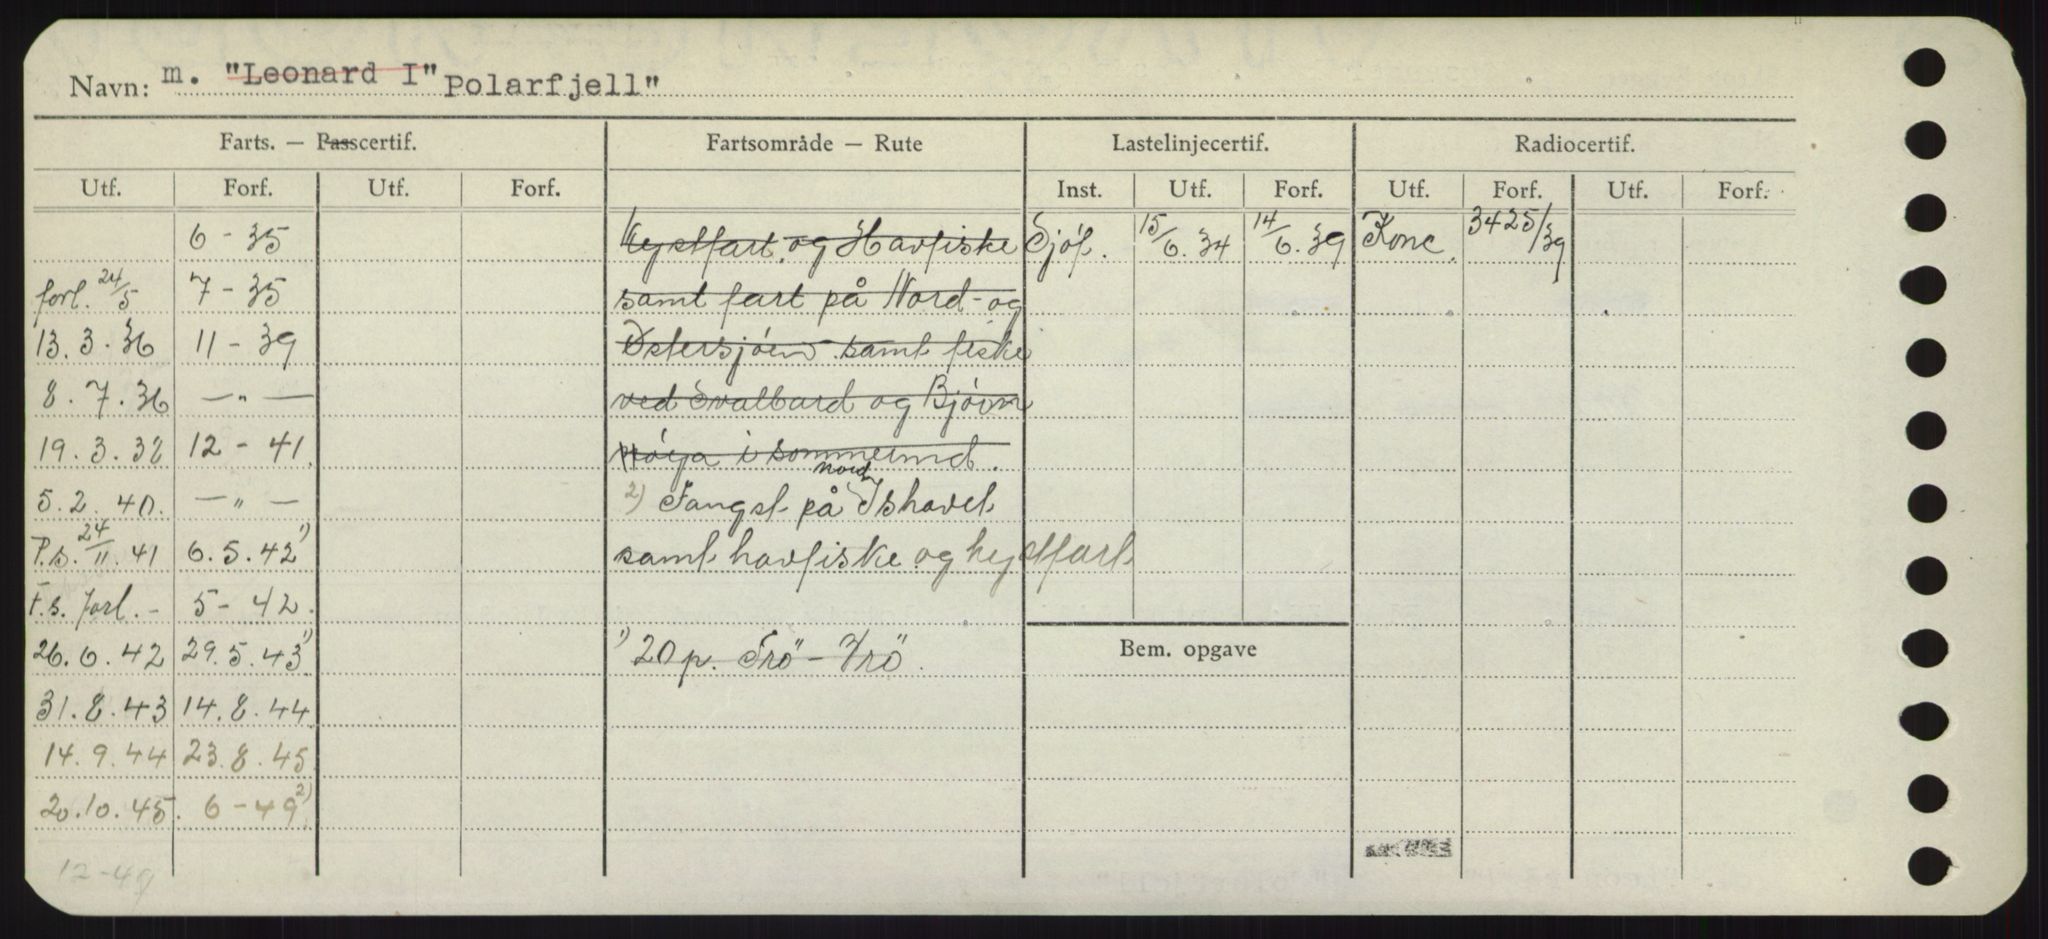 Navn: m. "Leonard I" Polarfjell"
Farts. — Passcertif. Fartsområde — Rute Lastelinjecertif. Radiocertif.
Utf. Forf. Utf. Forf. Inst. Utf. Forf. Utf. Forf. Utf. Forf.
6 - 35 Kystfart og Havfiske Sjöf. 15/6. 34 14/6. 39 Konc. 3425/39
forl. 24/5 7 - 35 samt fart på Nord- og
13. 3. 36 11 - 39 Østersjöen samt fiske
8. 7. 36 — " — ved Svalbard og Björn
19. 3. 38 12 - 41. i sommertid.
nord
5. 2. 40. — " — 2) Fangst på Ishavet
P.s. 24/11. 41 6. 5. 42 1) samt havfiske og kystfart
F.s. forl. - 5 - 42.
26. 6. 42 29. 5. 43 1) 1) 20 p. Frö - Vrö. Bem. opgave
31. 8. 43 14. 8. 44
14. 9. 44 23. 8. 45
20. 10. 45. 6 - 49 2)
12-49